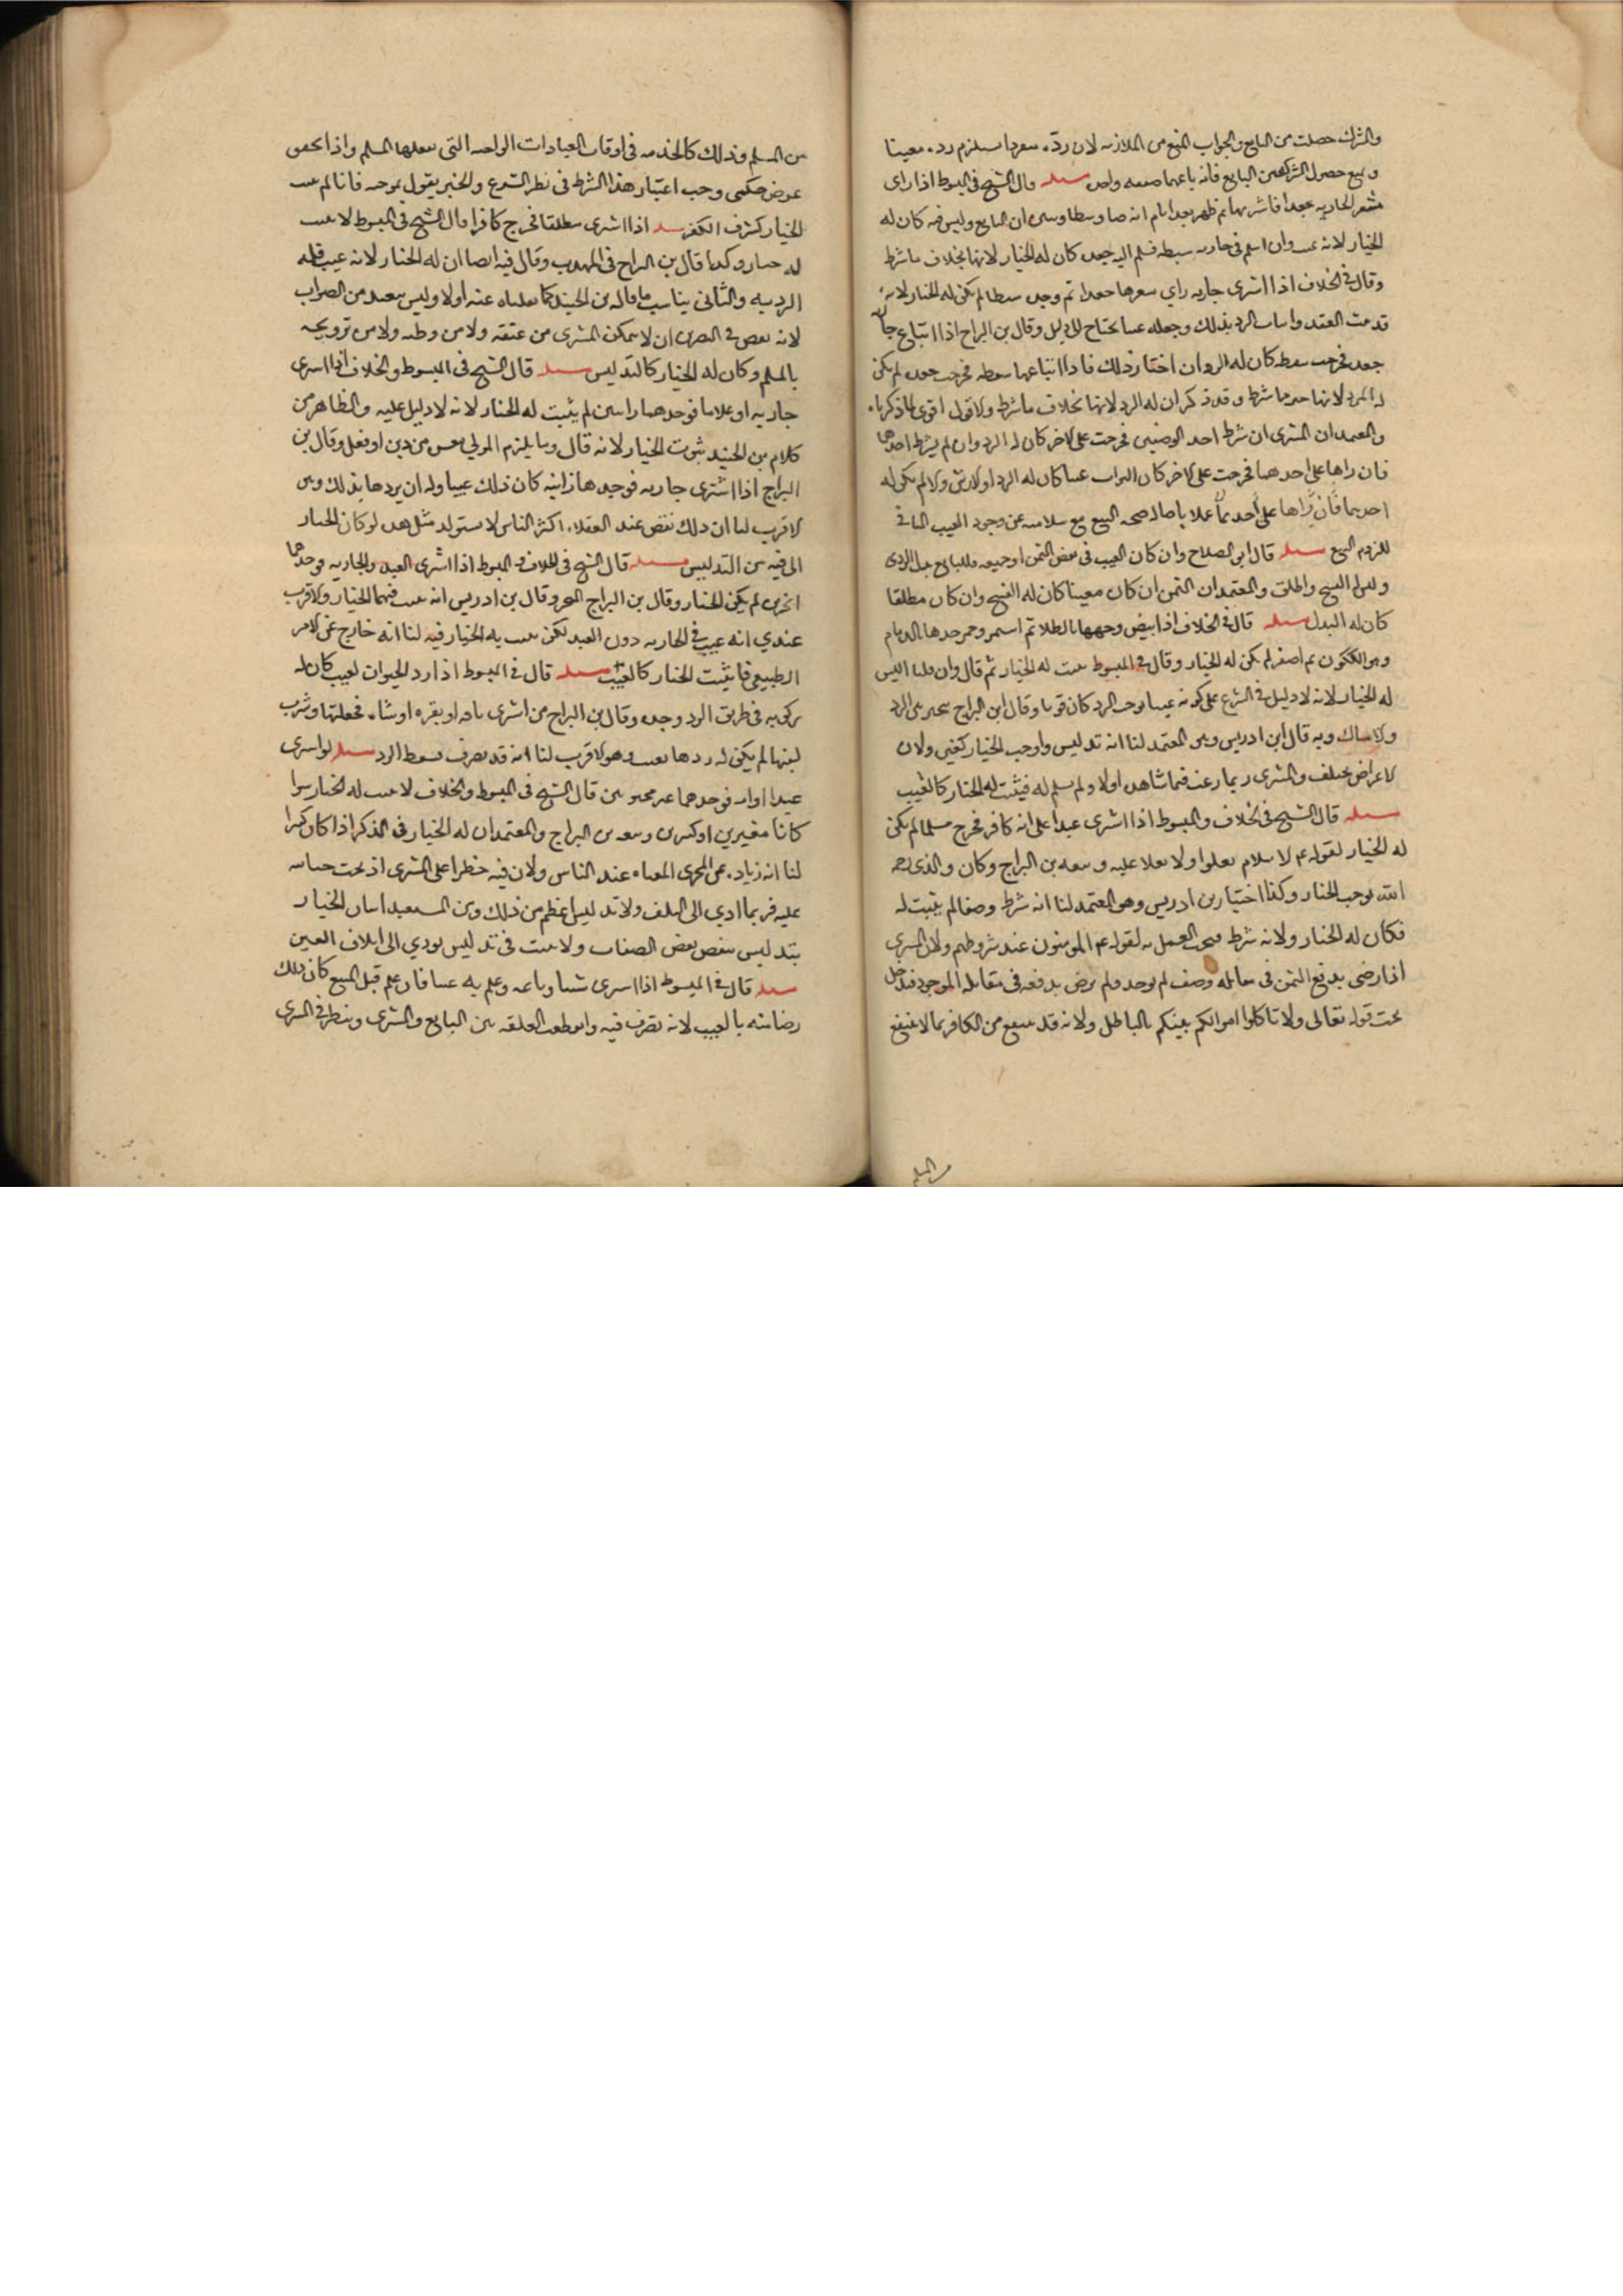 والشرك حصلت من البايع والجواب المنع من الملازمة لان رده منفردا يستلزم رده معيبا
ويمنع حصول الشركة من البايع فانه باعهما صفقه واحده مسئله قال الشيخ في المبسوط اذا راى
شعر الجاريه جعدا فاشتراها ثم ظهر بعد ايام انه صار سبطا وبين ان البايع دلس فيه كان له
الخيار لانه عيب وان اسلم في جاريه سبطه فسلم اليه جعده كان له الخيار لانها بخلاف ما شرط
وقال في الخلاف اذا اشترى جاريه راى شعرها جعدا ثم وجده سبطا لم يكن له الخيار لانه
قد ثبت العقد واثبات الرد بذلك وجعله عيبا يحتاج الى دليل وقال بن البراج اذا ابتاع جاريه
جعده فخرجت سبطه كان له الرد ان اختار ذلك فاذا ابتاعها سبطه فخرجت جعده لم يكن
له الرد لانها خير مما شرط وقد ذكر ان له الرد لانها بخلاف ما شرط والاول اقوى لما ذكرناه
والمعتمد ان المشترى ان شرط احد الوصفين فخرجت على الاخر كان له الرد وان لم يشترط احدهما
فان راها على احدهما فخرجت على الاخر كان عيبا كان له الرد او الارش والا لم يكن له
احدهما فان راها على احدهما عملا باصاله صحه البيع مع سلامته عن وجود العيب النافي
للزوم البيع مسئله قال ابو الصلاح وان كان العيب في بعض الثمن او جميعه فللبايع بدل الردى
وليس له الفسخ واطلق والمعتمد ان الثمن ان كان معينا كان له الفسخ وان كان مطلقا
كان له البدل مسئله قال في الخلاف اذا بيض وجهها بالطلا ثم اسمر وحمر خدها بالدمام
وهو الكلكون ثم اصفر لم يكن له الخيار وقال في المبسوط يثبت له الخيار ثم قال وان قلنا ليس
له الخيار لانه لا دليل في الشرع على كونه عيبا يوجب الرد كان قويا وقال ابن البراج يتخير بين الرد
والامساك وبه قال ابن ادريس وهو المعتمد لنا انه تدليس واوجب الخيار كغيره ولان
الاعراض تختلف والمشترى ربما رغب فيما شاهده اولا ولم يسلم له فيثبت له الخيار كالعيب
مسئله قال الشيخ في الخلاف والمبسوط اذا اشترى عبدا على انه كافر فخرج مسلما لم يكن
له الخيار لقوله ع الاسلام يعلوا ولا يعلا عليه وتبعه بن البراج وكان والدى رحمه
الله يوجب الخيار وكذا اختيار بن ادريس وهو المعتمد لنا انه شرط وصفا لم يثبت له
فكان له الخيار ولانه شرط فيجب العمل به لقوله ع المومنون عند شروطهم ولان المشترى
اذا رضى بدفع الثمن في مقابله وصف لم يوجد ولم يرض بدفعه في مقابله الموجود فيدخل
تحت قوله تعالى ولا تاكلوا اموالكم بينكم بالباطل ولانه قد ينتفع من الكافر بما لا ينتفع
من المسلم
من المسلم وذلك كالخدمه في اوقات العبادات الواجبه التى يفعلها المسلم واذا تحقق
عرض حكمى وجب اعتبار هذا الشرط في نظر الشرع والخبر يقول بموجبه فانا لم نثبت
الخيار لشرف الكفر مسئله اذا اشترى مطلقا فخرج كافرا قال الشيخ في المبسوط لا يثبت
له خيار وكذا قال بن البراج في المهذب وقال فيه ايضا ان له الخيار لانه عيب فله
الرد به والثانى يناسب ما قاله بن الجنيد كما نقلناه عنه اولا وليس ببعيد من الصواب
لانه نقص في التصرف ان لا يتمكن المشترى من عتقه ولا من وطيه ولا من تزويجه
بالمسلم وكان له الخيار كالتدليس مسئله قال الشيخ في المبسوط والخلاف اذا اشترى
جاريه او غلاما فوجدهما زانيين لم يثبت له الخيار لانه لا دليل عليه والظاهر من
كلام بن الجنيد ثبوت الخيار لانه قال وما يلزم المولى من دين او فعل وقال بن
البراج اذا اشترى جاريه فوجدها زانيه كان ذلك عيبا وله ان يردها بذلك وهو
الاقرب لنا ان ذلك نقص عند العقلاء اكثر الناس لا يستولد مثل هذه لو كان الخيار
الى فيه من التدليس مسئله قال الشيخ في الخلاف والمبسوط اذا اشترى العبد والجاريه فوجدهما
ابخرين لم يكن الخيار وقال بن البراج وقال بن ادريس انه يثبت فيهما الخيار والاقرب
عندي انه عيب في الجاريه دون العبد لكن يثبت به الخيار فيه لنا انه خارج عن الامر
الطبيعى فاثبت الخيار كالعيب مسئله قال في المبسوط اذا رد الحيوان لعيب كان له
ركوبه في طريق الرد وجده وقال بن البراج من اشترى ناقه او بقره او شاه فحلبها وشرب
لبنها لم يكن له ردها بعيب وهو الاقرب لنا انه قد تصرف فسقط الرد مسئله لو اشترى
عبدا او امه فوجدهما غير مختونين قال الشيخ في المبسوط والخلاف لا يثبت له الخيار سوا
كانا صغيرين او كبيرين وتبعه بن البراج والمعتمد ان له الخيار في الذكر اذا كان كبيرا
لنا انه زياده عن المجرى المعتاد عند الناس ولان فيه خطرا على المشترى اذ تحت ختانه
عليه فربما ادي الى التلف ولا تدليس اعظم من ذلك ومن المستبعد اثبات الخيار
بتدليس بنقص بعض الصفات ولا يثبت في تدليس يودي الى اتلاف العين
مسئله قال في المبسوط اذا اشترى شيئا وباعه وعلم به عيبا فان علم قبل البيع كان ذلك
رضا منه بالعيب لانه تصرف فيه وانقطعت العلقه بين البايع والمشترى وينظر في المشترى